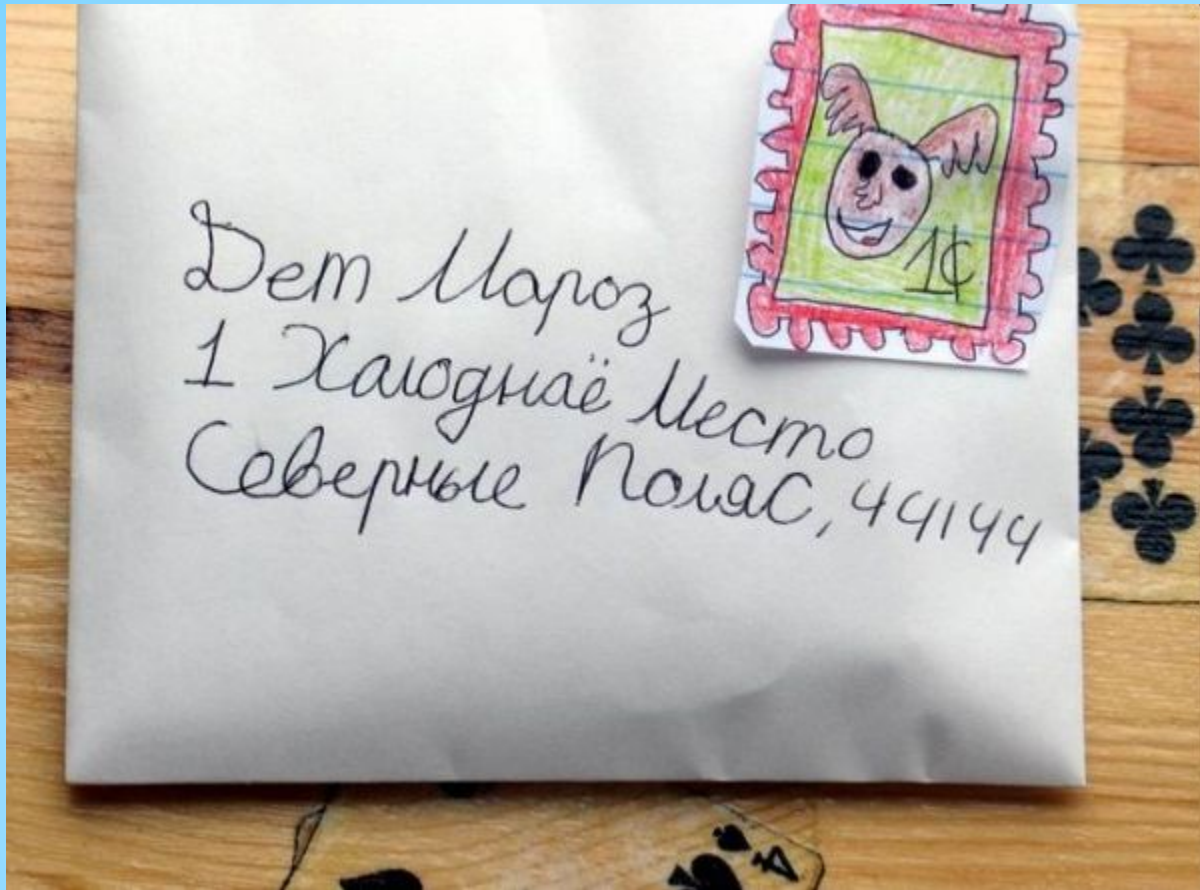 1¢
Дет Мароз
1 Халоднаё Место
Северные ПоляС, 44144
4